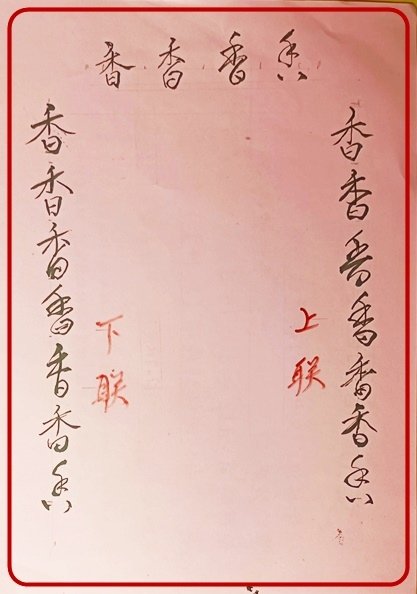 香香香香
香香香香香香香
上联
下联
香香香香香香香